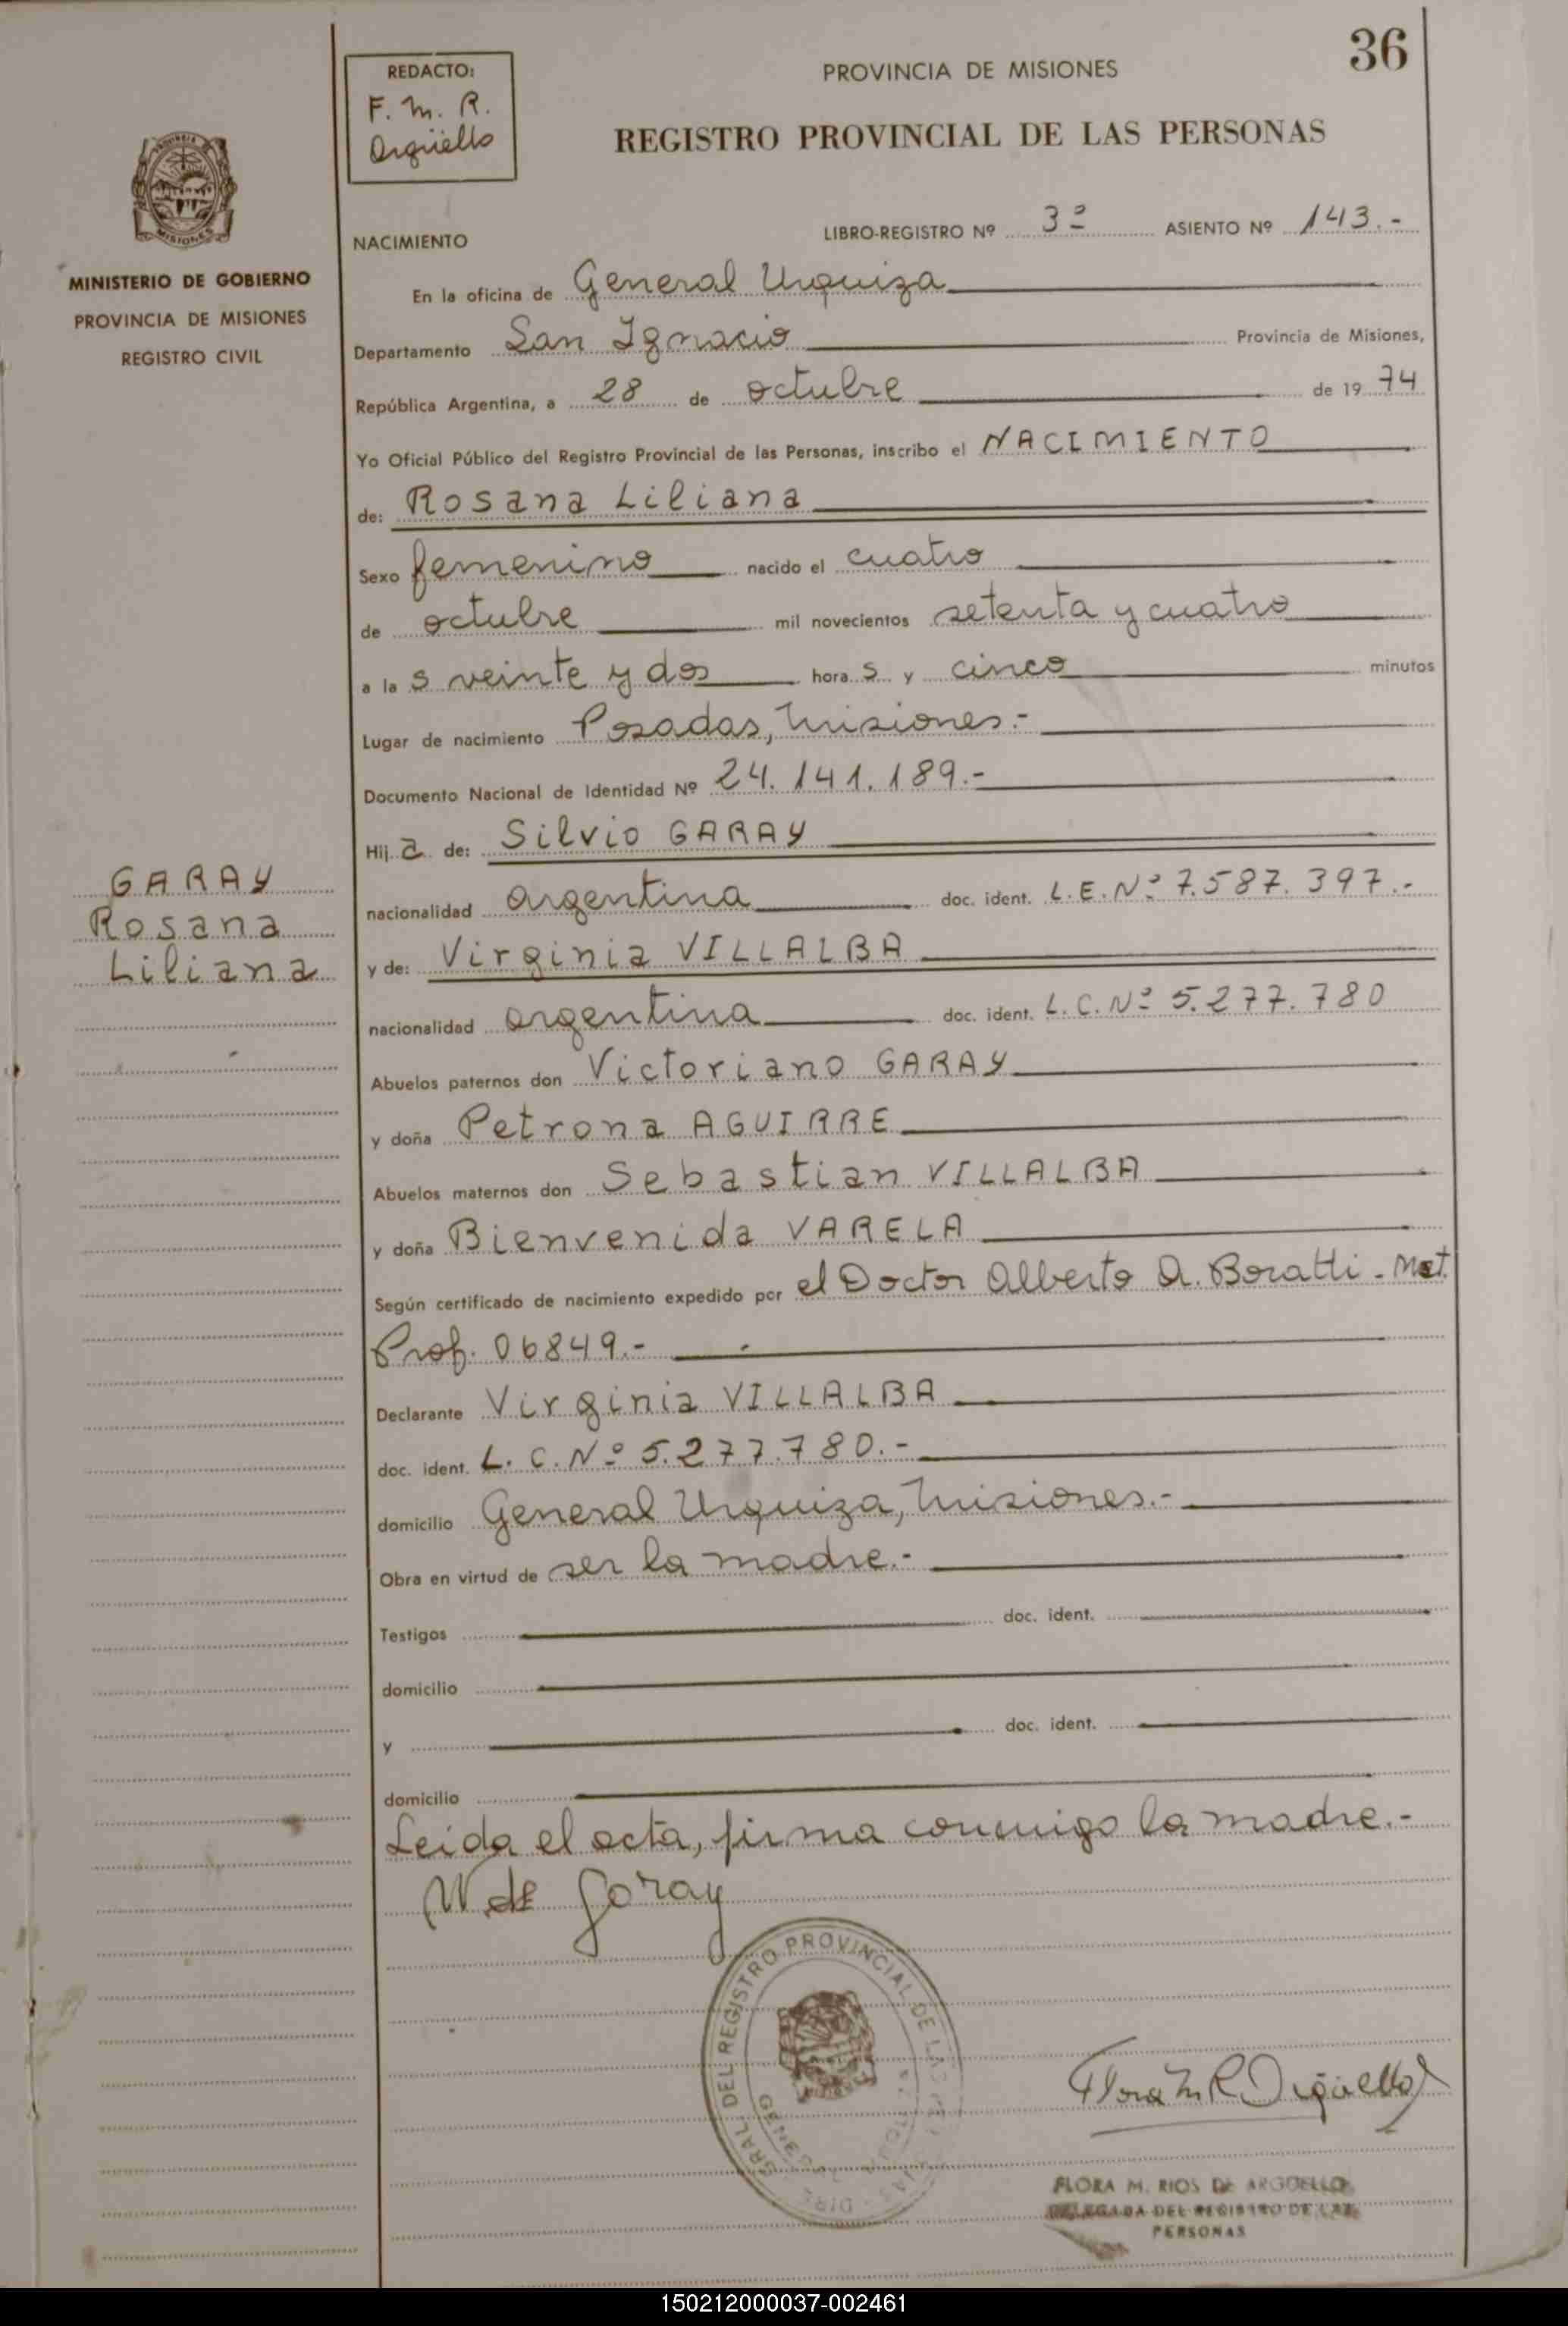 36
REDACTO:
F. M. R.
Argüello
PROVINCIA DE MISIONES
REGISTRO PROVINCIAL DE LAS PERSONAS
MISIONES
MINISTERIO DE GOBIERNO
PROVINCIA DE MISIONES
REGISTRO CIVIL
NACIMIENTO LIBRO-REGISTRO Nº 3º ASIENTO Nº 143.-
En la oficina de General Urquiza
Departamento San Ignacio Provincia de Misiones,
República Argentina, a 28 de octubre de 19 74
Yo Oficial Público del Registro Provincial de las Personas, inscribo el NACIMIENTO
de: Rosana Liliana
Sexo femenino nacido el cuatro
de octubre mil novecientos setenta y cuatro
a la s veinte y dos hora s y cinco minutos
Lugar de nacimiento Posadas, Misiones.-
Documento Nacional de Identidad Nº 24.141.189.-
Hij a de: Silvio GARAY
GARAY
Rosana
Liliana
nacionalidad argentina doc. ident. L.E.Nº 7.587.397.-
y de: Virginia VILLALBA
nacionalidad argentina doc. ident. L.C.Nº 5.277.780
Abuelos paternos don Victoriano GARAY
y doña Petrona AGUIRRE
Abuelos maternos don Sebastian VILLALBA
y doña Bienvenida VARELA
Según certificado de nacimiento expedido por el Doctor Alberto A. Boratti - Mat.
Prof. 06849.-
Declarante Virginia VILLALBA
doc. ident. L.C.Nº 5.277.780.-
domicilio General Urquiza, Misiones.-
Obra en virtud de ser la madre.-
Testigos doc. ident.
domicilio
y doc. ident.
domicilio
Leida el acta, firma conmigo la madre.-
V de Garay
GRAL. DEL REGISTRO PROVINCIAL DE LAS
Flora M R Argüello
FLORA M. RIOS DE ARGÜELLO
DELEGADA DEL REGISTRO DE LAS
PERSONAS
150212000037-002461